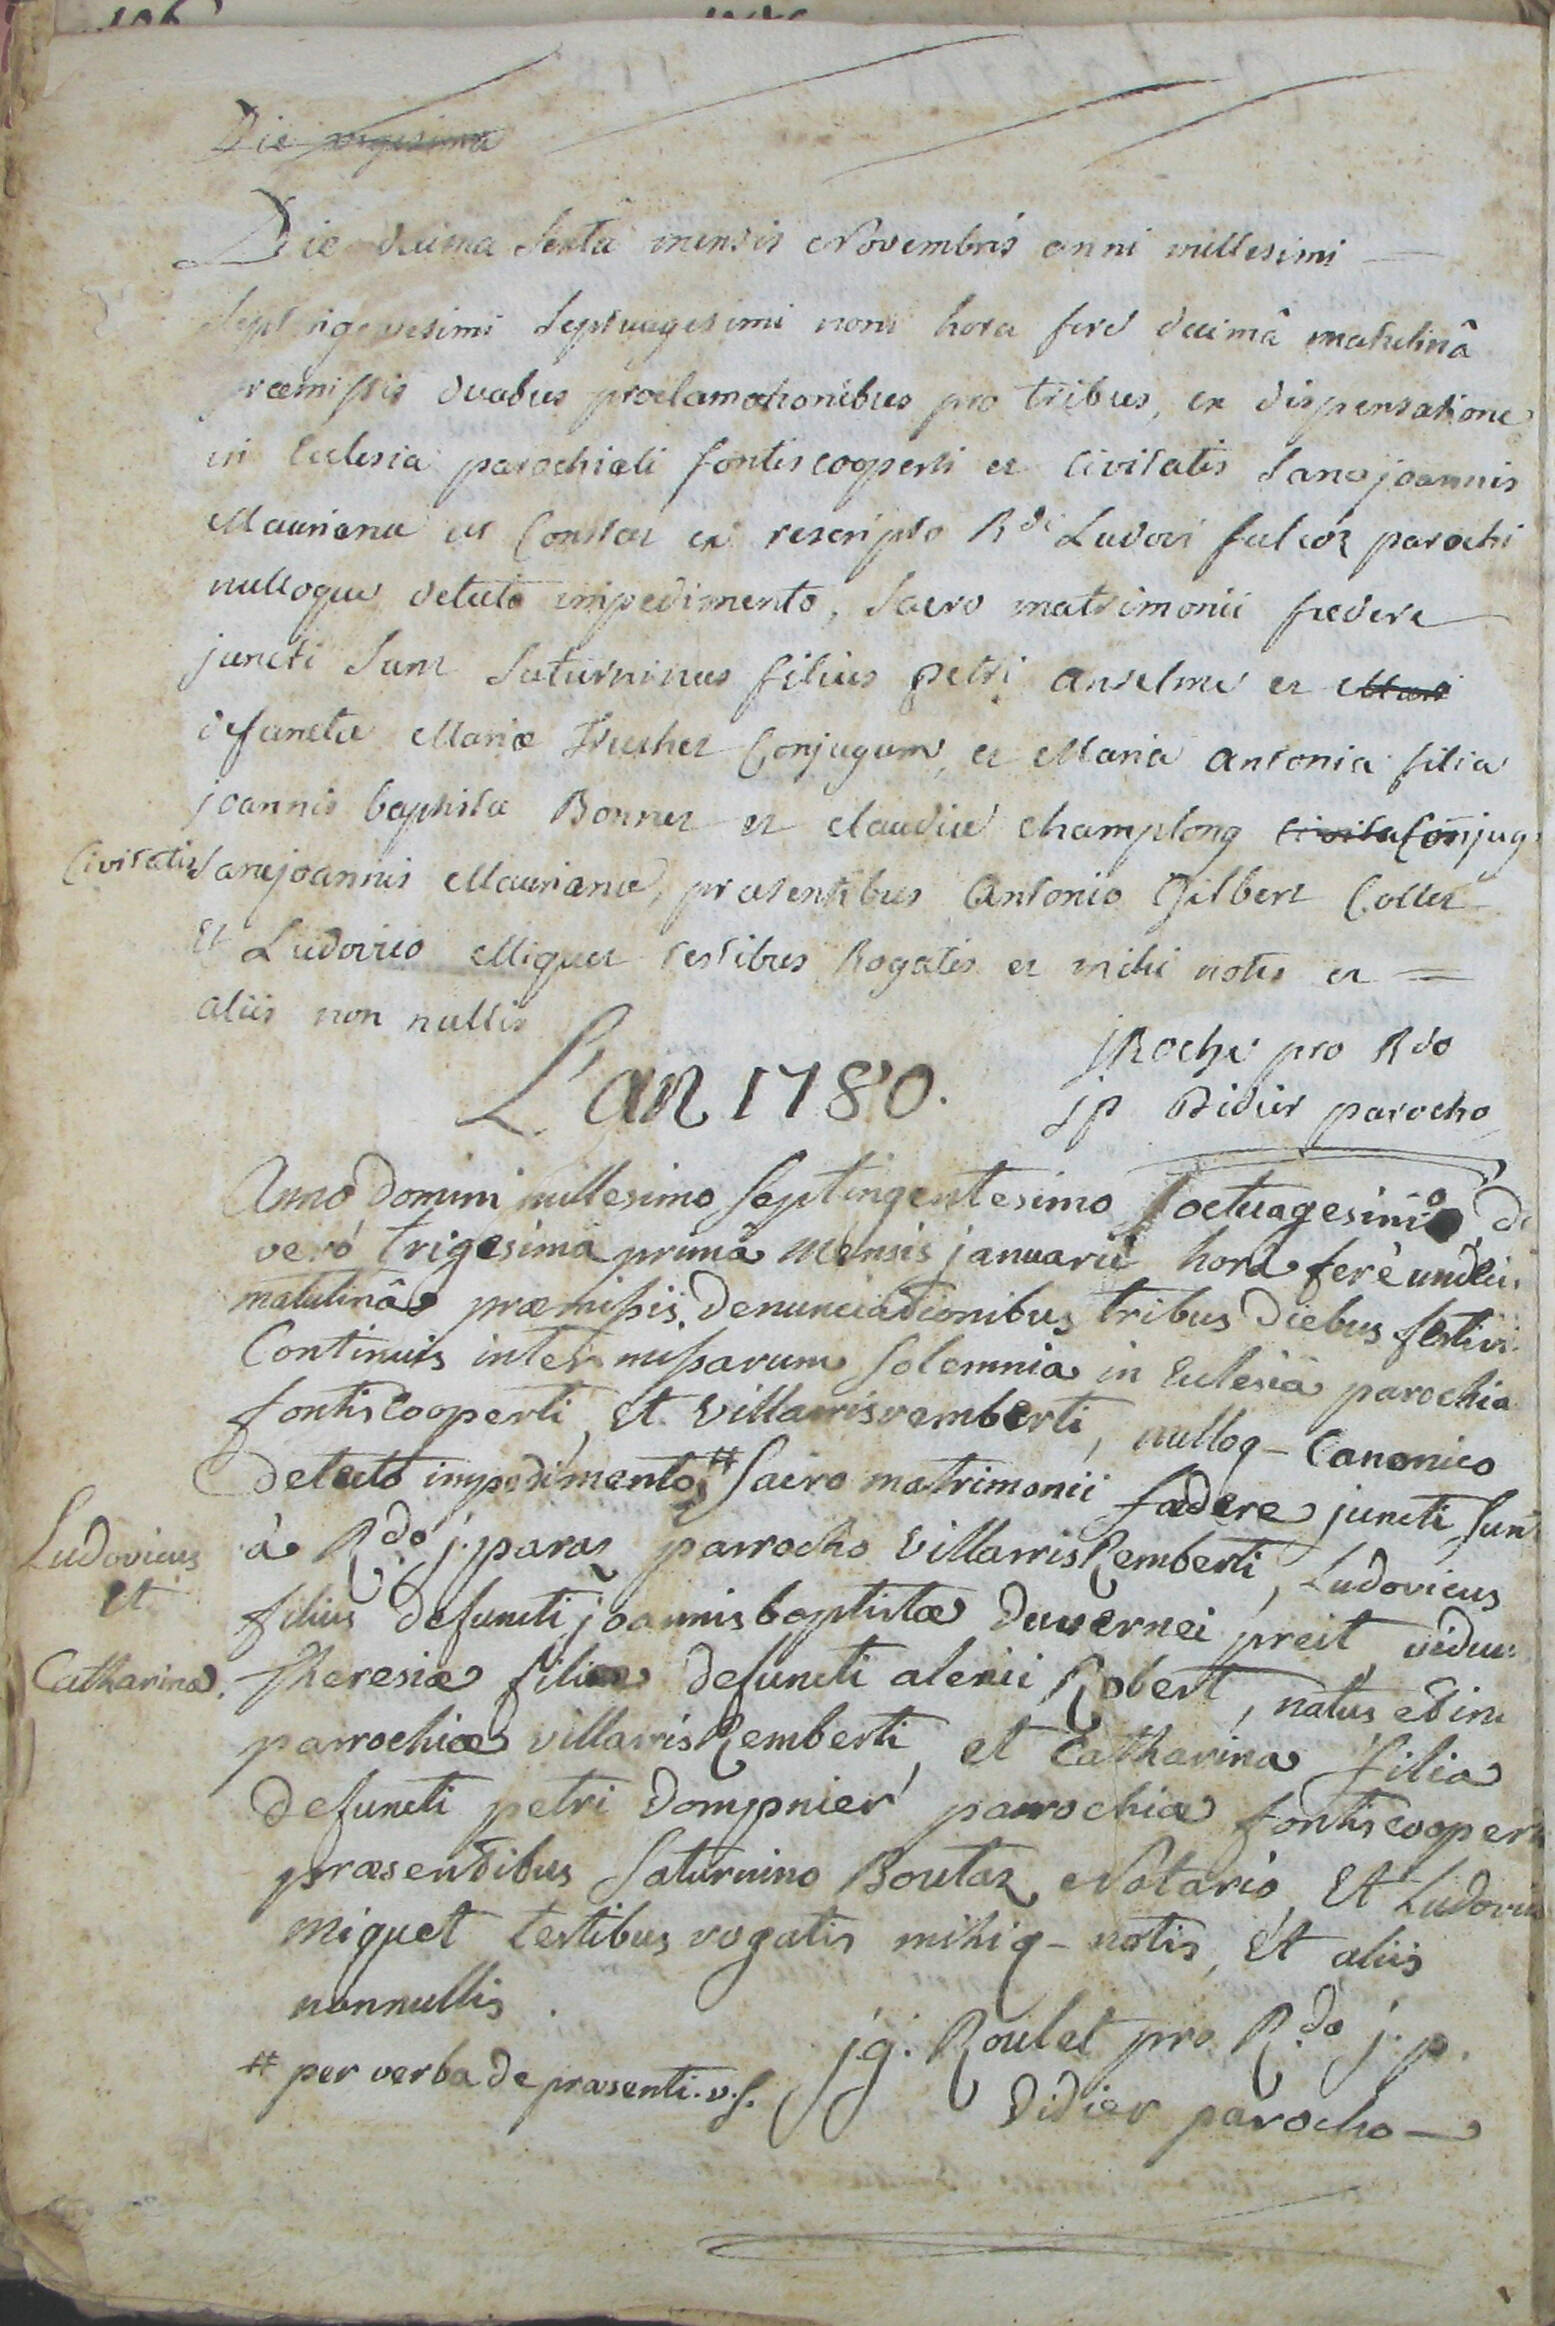 Die vigesima
Die decima Sexta mensis Novembris anni millesimi
Septingentesimi Septuagesimi noni hora fere decimâ matutinâ
præmissis duabus proclamationibus pro tribus, ex dispensatione
in Ecclesia parochiali fontiscooperti et Civitatis Sancjoannis
Maurianæ ut Constat ex rescripto Rdi Ludovi falcoz parochi
nulloque detecto impedimento, Sacro matrimonii fœdere
juncti Sunt Saturninus filius petri anselme et Mari
defunctæ Mariæ Truchet Conjugum, et Maria antonia filia
joannis baptistæ Bonnet et claudiæ champlong civita Conjug
Civitatis Sancjoannis Maurianæ, præsentibus Antonio Gilbert Collet
Et Ludovico Miquet testibus Rogatis et mihi notis et =
aliis non nullis
jRoche pro Rdo
jp Didier parocho
L'an 1780.
Anno Domini millesimo Septingentesimo octuagesimo, di
veró trigesimâ primâ mensis januarii horâ ferè undeci
matutinâ præmissis Denunciationibus tribus Diebus festivi
Continuis inter missarum Solemnia in Eclesiâ parochia
fontiscooperti, et villarrisremberti, nulloq- Canonico
Detecto impedimento, # Sacro matrimonii fædere juncti Sun
à Rdo j. paraz parrocho villarrisRemberti, Ludovicus
Ludovicus
et
Catharina.
filius defuncti joannisbaptistæ Duvernei preit, viduu
Theresiæ filiæ defuncti alexii Robert, natus
parrochiæ villarrisRemberti, et Catharina filia
Defuncti petri Dompnier parrochiæ fontiscooper
præsentibus Saturnino Boutaz Notario, Et Ludovic
miquet testibus rogatis mihiq- notis, Et aliis
nonnullis.
j.g. Roulet pro R.do j. p.
Didier parocho —
# per verba de præsenti. v.s.